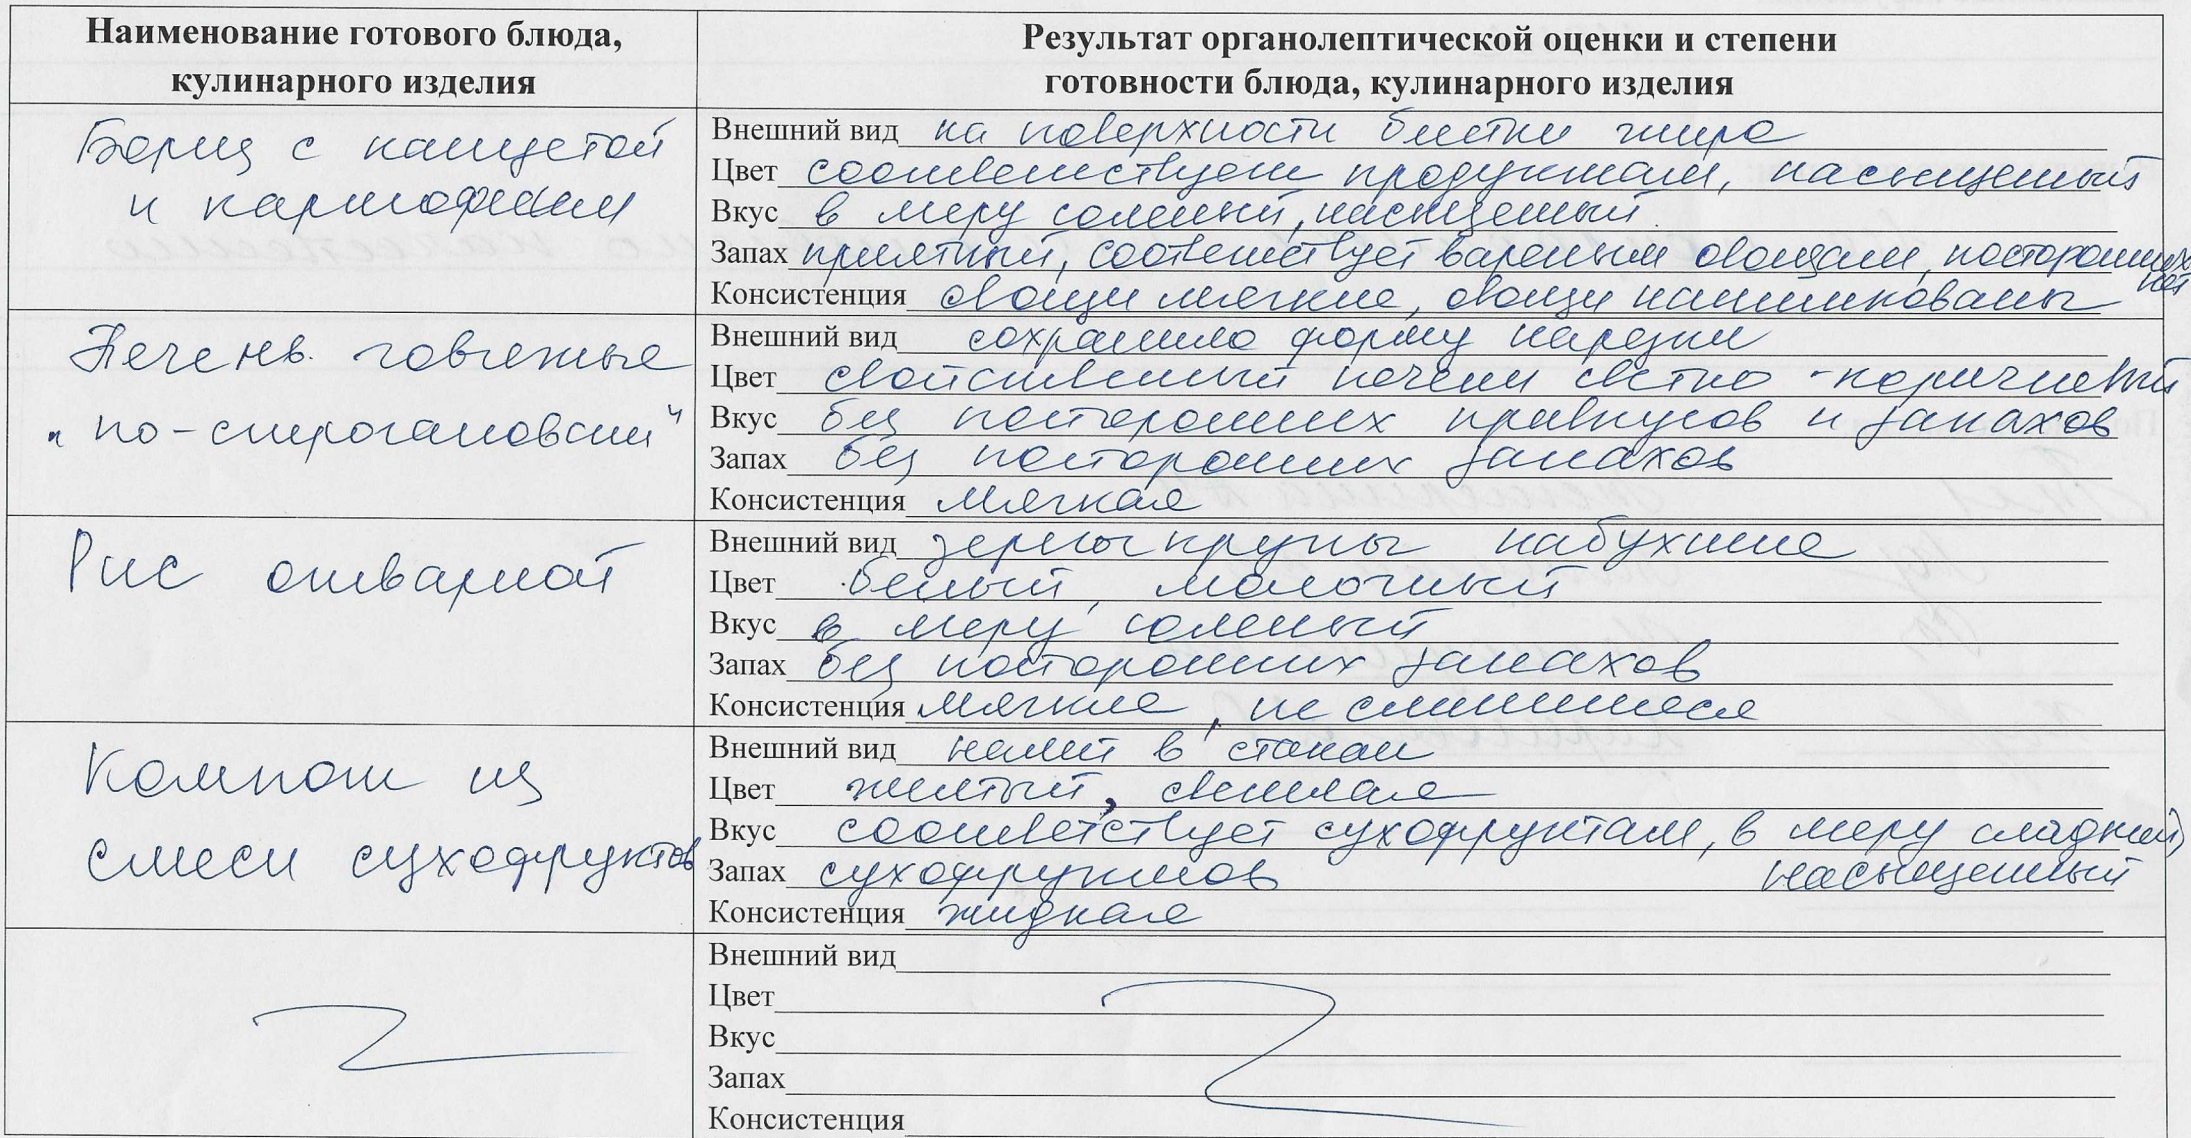 Наименование готового блюда,
кулинарного изделия
Результат органолептической оценки и степени
готовности блюда, кулинарного изделия
Борщ с капустой
и картофелем
Внешний вид на поверхности блестки жира
Цвет соответствует продуктам, насыщенный
Вкус в меру соленый, насыщенный
Запах приятный, соответствует вареным овощам, посторонних
нет
Консистенция овощи мягкие, овощи нашинкованы
Печень говяжья
"по-строгановски"
Внешний вид сохранила форму нарезки
Цвет свойственный печени светло-коричневый
Вкус без посторонних привкусов и запахов
Запах без посторонних запахов
Консистенция мягкая
Рис отварной
Внешний вид зерны крупы набухшие
Цвет белый, молочный
Вкус в меру соленый
Запах без посторонних запахов
Консистенция мягкие, не слипшиеся
Компот из
смеси сухофруктов
Внешний вид налит в стакан
Цвет желтый, светлая
Вкус соответствует сухофруктам, в меру сладкий,
насыщенный
Запах сухофруктов
Консистенция жидкая
Внешний вид
Цвет
Вкус
Запах
Консистенция